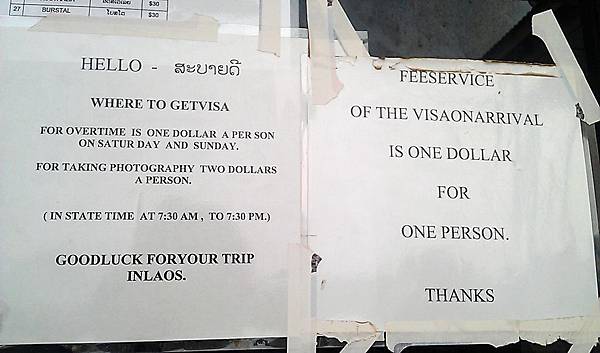 27 BURSTAL ໂບສໂຕ $30
HELLO - ສະບາຍດີ
WHERE TO GETVISA
FOR OVERTIME IS ONE DOLLAR A PER SON
ON SATUR DAY AND SUNDAY.
FOR TAKING PHOTOGRAPHY TWO DOLLARS
A PERSON.
( IN STATE TIME AT 7:30 AM , TO 7:30 PM.)
GOODLUCK FORYOUR TRIP
INLAOS.
FEESERVICE
OF THE VISAONARRIVAL
IS ONE DOLLAR
FOR
ONE PERSON.
THANKS